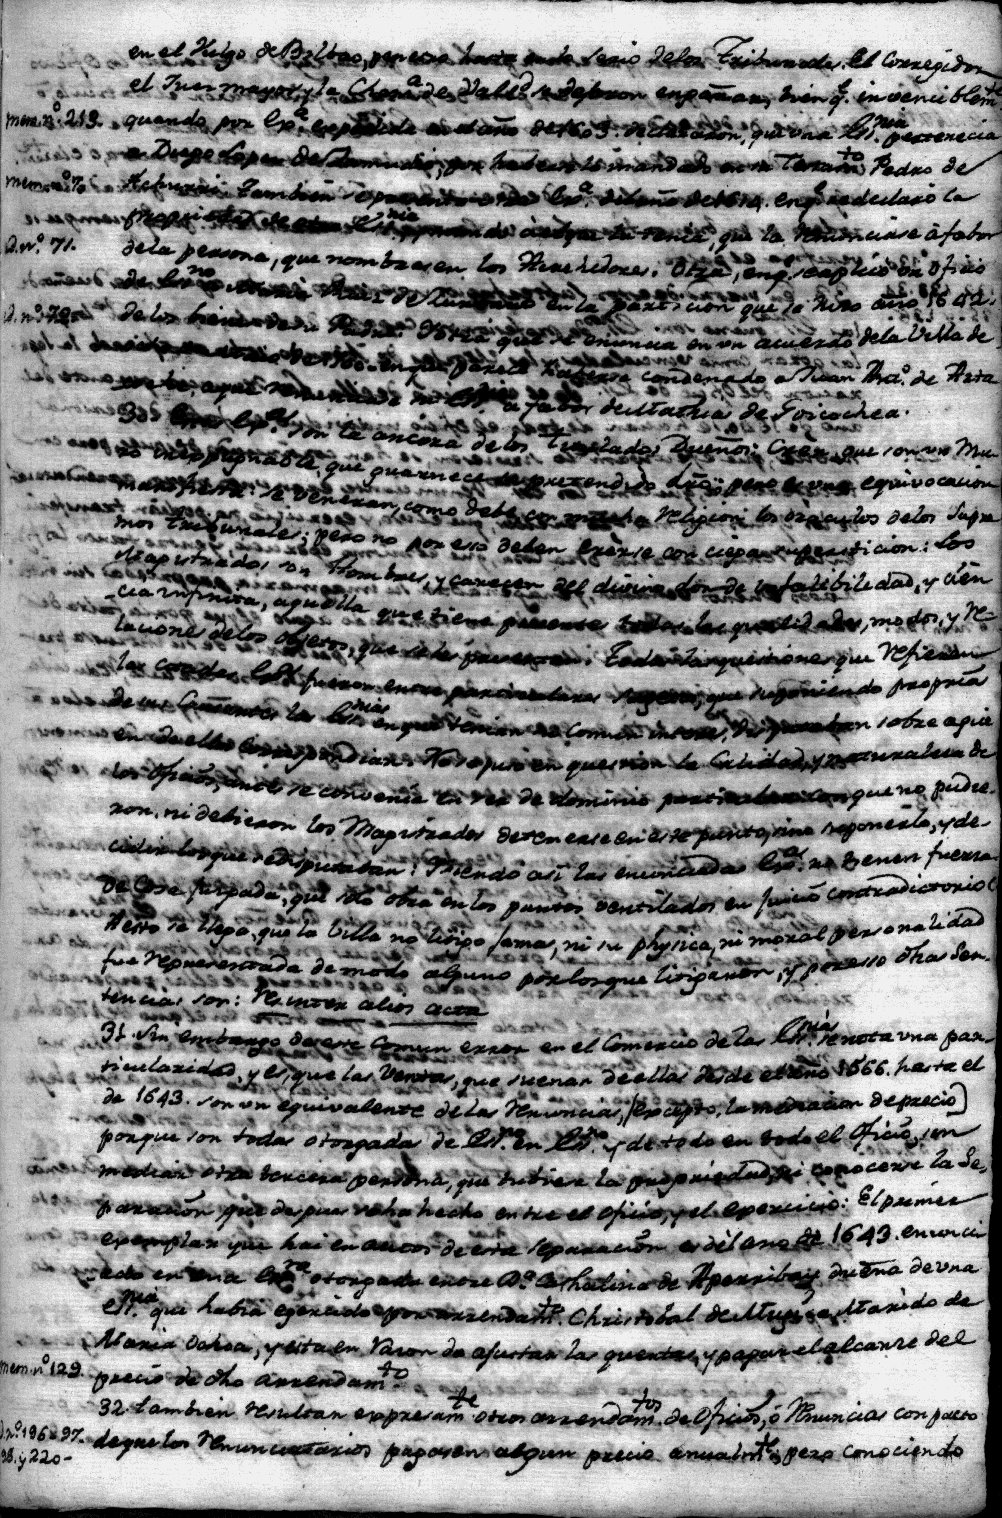 en el Vulgo de Bilbao, penetró hasta en lo serio de los Tribunales. El Corregidor
el Juez mayor, y la Chanª. de Vallᵈ. se dejaron engañar, bien q̃. invenciblemᵗᵉ
mem. nº. 219. quando por Expª. expedida en el año de 1605. declararon, que una Esⁿⁱᵃ perteneciá
a Diego Lopez de por haberselo mandado en su Testamᵗᵒ Pedro de
mem. nº 7 También otra Exª. del año de 1614. en q̃ se declaró la
propiedad de otra Esⁿⁱᵃ que la renunciase á fabor
D. nº. 71. de la persona, que nombrasen los Acrehedores. Otra, en q̃. se aplicó un oficio
de Esⁿᵒ á Maria Ruiz de en la particion que se hizo año 1642.
D. nº. 72. de los bienes de su Padre. Y otra que se enuncia en un acuerdo de la Villa de
de 1560. en que parece haberse condenado a Juan Mrñ. de Arta
a favor de Matheas de Goicochea.
30. Estas Expˢ. son la ancora de los titulados Dueños: Creen que son un Mu-
ro inexpugnable, que guarnece su pretendido dro: pero es una equivocacion
manifiesta. Se veneran, como debe con mucha religion los oraculos de los Supre
mos tribunales; pero no por eso deben creerse con ciega supersticion: Los
Magistrados son Hombres, y carecen del divino don de infalibilidad, y cien
cia infinita, aquella que tiene presentes todas las qualidades, modos, y re
laciones de los objetos, que se le presentan. Todas las questiones que refieren
las citadas Expˢ. fueron entre particulares sugetos, que suponiendo propriás
de sus Causantes las Esⁿⁱᵃˢ en que tenian su comun interes, disputaban sobre a quie
en de ellos correspondian. No se puso en question la Calidad, y naturaleza de
los oficios, antes se convenia en ser de dominio particular con que no pudie-
ron, ni debieron los Magistrados detenerse en este punto, sino suponerlo, y de-
cidir los que se disputaban: Siendo así las enunciadas Expˢ. no tienen fuerza
de Cosa juzgada, que solo obra en los puntos ventilados en juicio contradictorio
A esto se llega, que la Villa no litigó jamas, ni su physica, ni moral personalidad
fue representada de modo alguno por los que litigaron, y por eso dhas Sen-
tencias son: Res inter alios acta
31. Sin embargo de este comun error en el Comercio de las Esⁿⁱᵃˢ se nota una par-
ticularidad, y es, que las Ventas, que suenan de ellas desde el año 1566. hasta el
de 1643. son un equivalente de las renuncias, (excepto, la mediacion de precio)
porque son todas otorgadas de Esⁿᵒ en Esⁿᵒ. y de todo en todo el Oficio, sin
mediar otra tercera persona, que tubiese la propriedad, ni conocerse la Se-
paracion que despues se ha hecho entre el oficio, y el exercicio: El primer
exemplar que hai en autos de esta separacion es del año de 1643. enunci
ado en una Esⁿʳᵃ otorgada entre Dª. Cathalina de Aperribay dueña de una
Esⁿⁱᵃ. que habia egercido por arrendamᵗᵒ. Christobal de Muxica, Marido de
Maria Ochoa, y esta en razon de ajustar las quentas, y pagar el alcanze del
mem. nº 129. precio de dho arrendamᵗᵒ
32. tambien resultan expresamᵗᵉ otros arrendamᵗᵒˢ. de Oficios, ó renuncias con pacto
D. nº. 196. 97. de que los renunciatarios pagasen algun precio anualmᵗᵉ; pero conociendo
98. y 220-